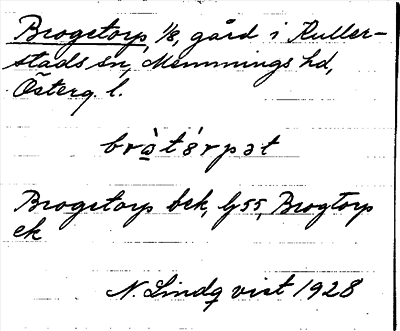 Brogetorp, 1/8, gård i Kuller-
stads sn, Memmings hd,
Österg. l.
bràt⁠ǿrpət
Brogetorp bek, G55, Brogtorp
ek
N. Lindqvist 1928